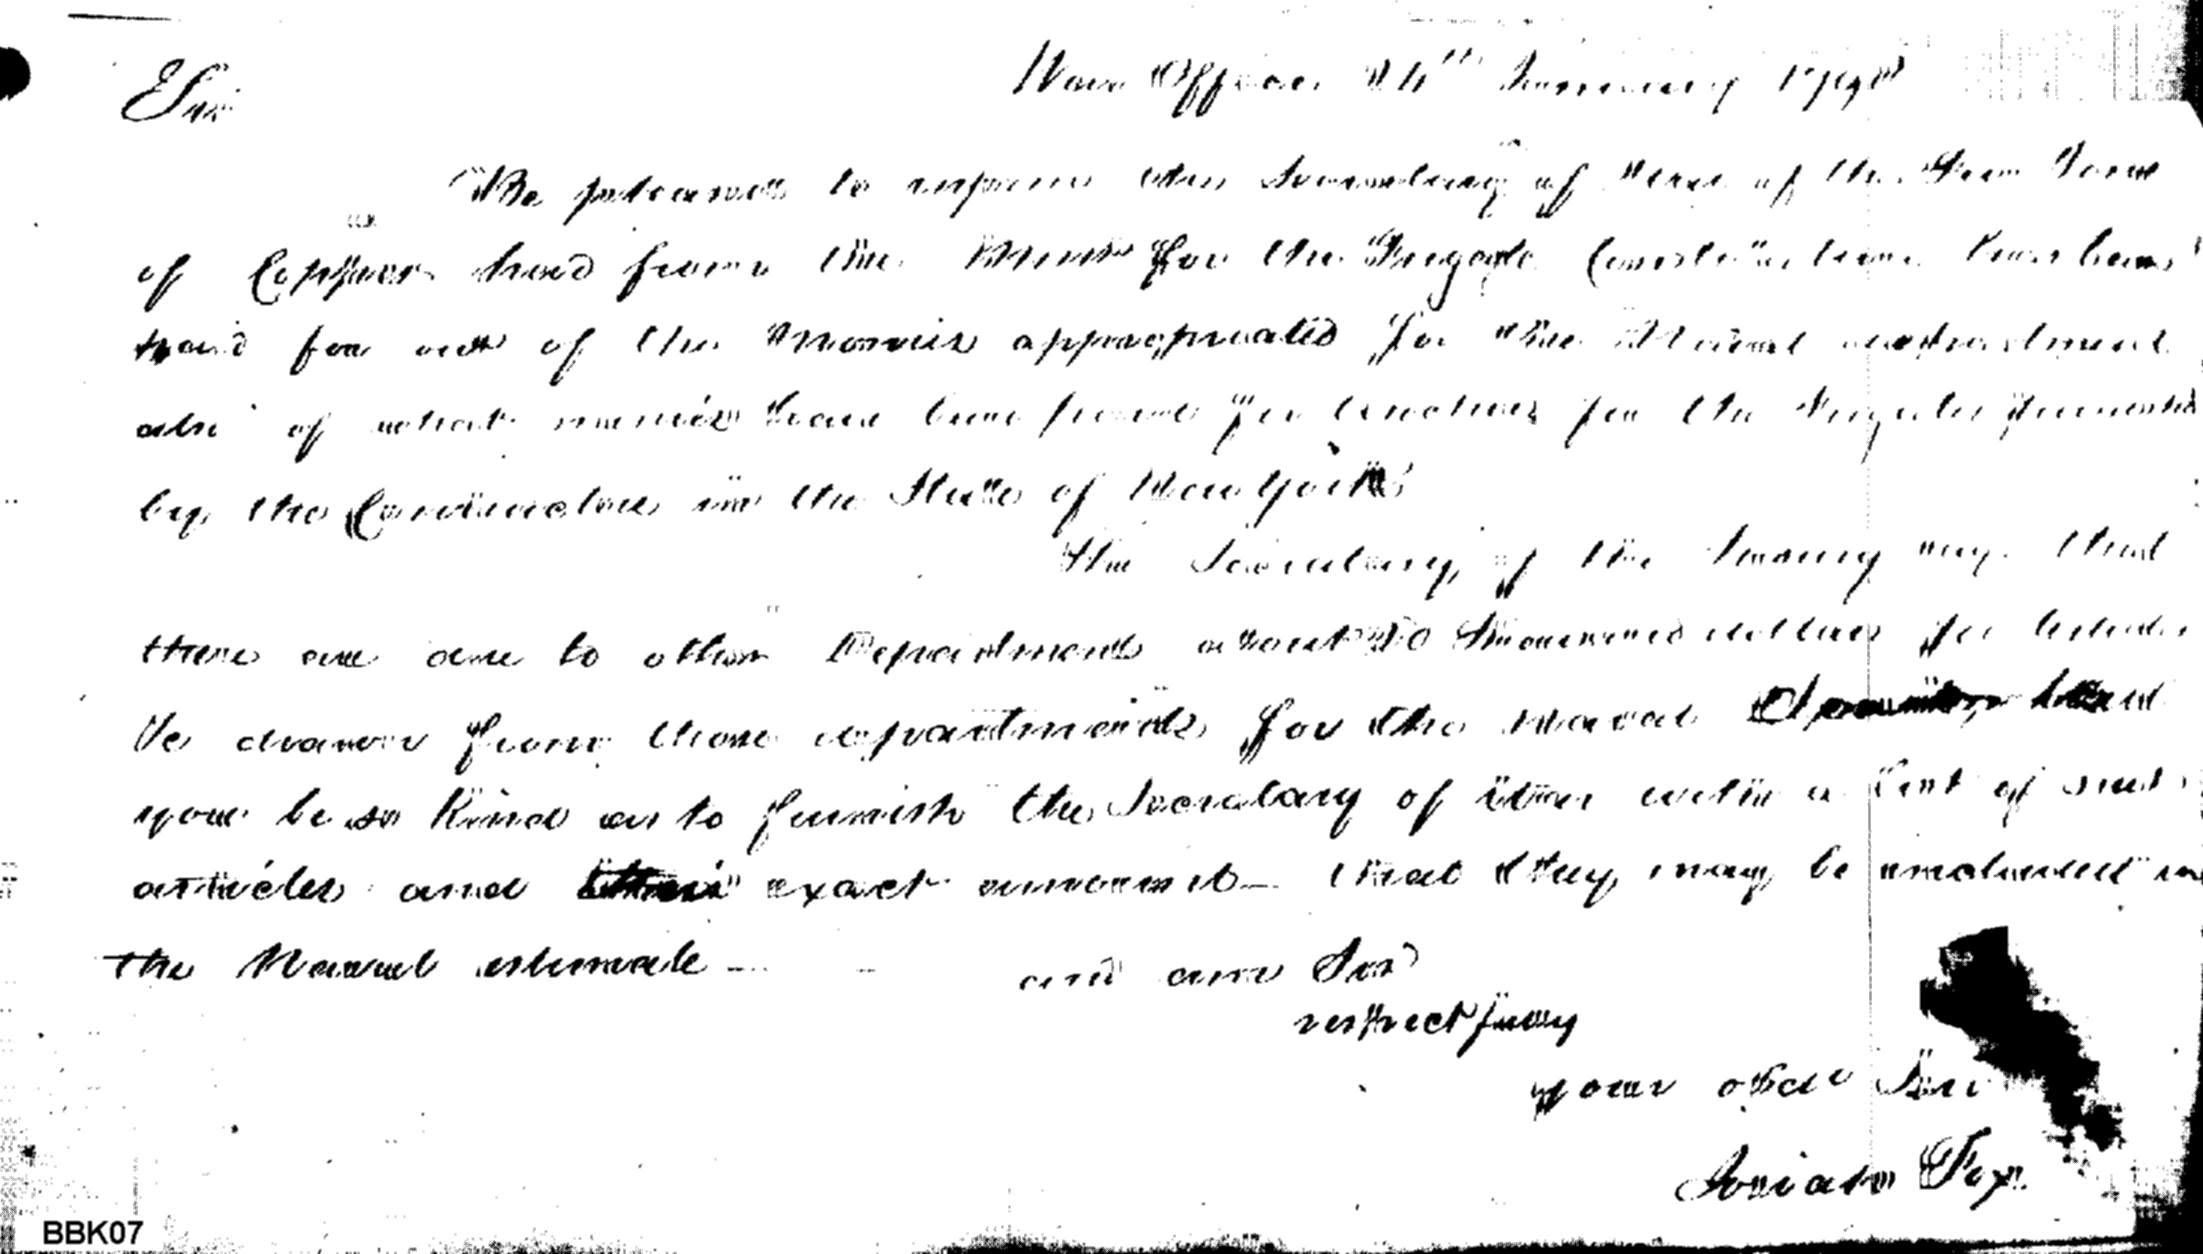 War Office 24th January 1798
Sir
Be pleased to inform the Secretary of War if the Ten Tons
of Copper had from the Mint for the Frigate Constitution has been
paid for out of the monies appropriated for the Naval department
also of what monies have been paid for for the Frigates
by the Contractors in the State of New York
The Secretary of the Treasury says that
there are due to other Departments about thousand dollars for articles
drawn from those departments for the Naval
you be so kind as to furnish the Secretary of War with a List of such
articles and exact amount – that they may be included in
the Naval estimate –
and am Sir
respectfully
your obdt Ser
Josiah Fox
BBK07